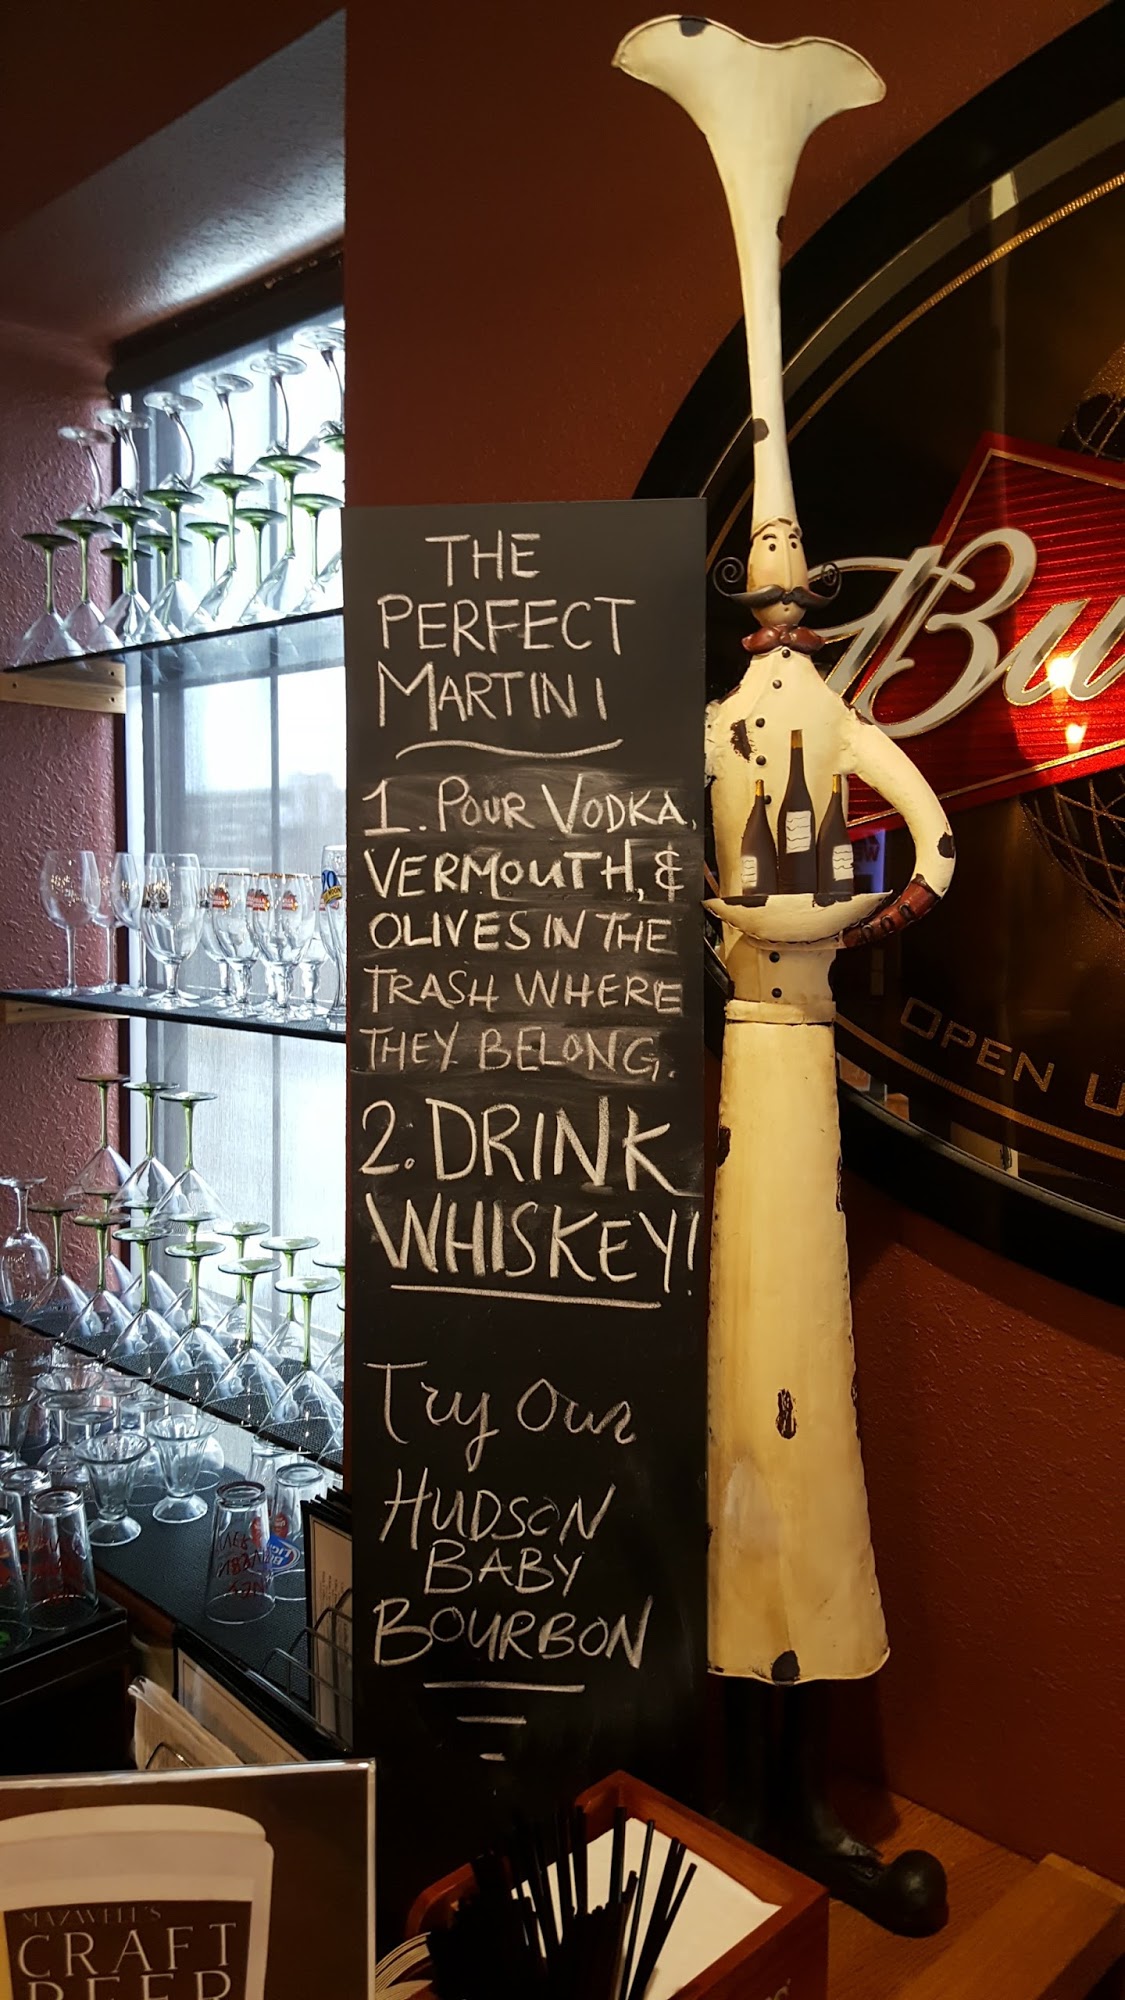 THE
PERFECT
MARTINI
1. POUR VODKA,
VERMOUTH, &
OLIVES IN THE
TRASH WHERE
THEY BELONG.
2. DRINK
WHISKEY!
Try Our
HUDSON
BABY
BOURBON
Bu
OPEN
MAZWELL'S
CRAFT
BEER